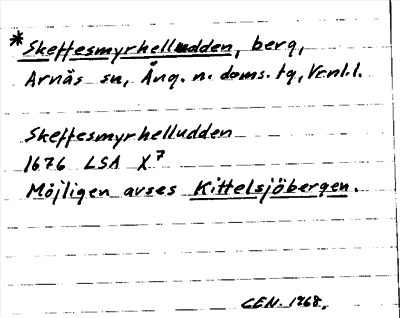 *Skeftesmyrhelludden, berg,
Arnäs sn, Ång. n. doms. tg, Vrnl.l.
Skeftesmyrhelludden
1676 LSA X7
Möjligen avses Kittelsjöbergen.
CEN. 1968.